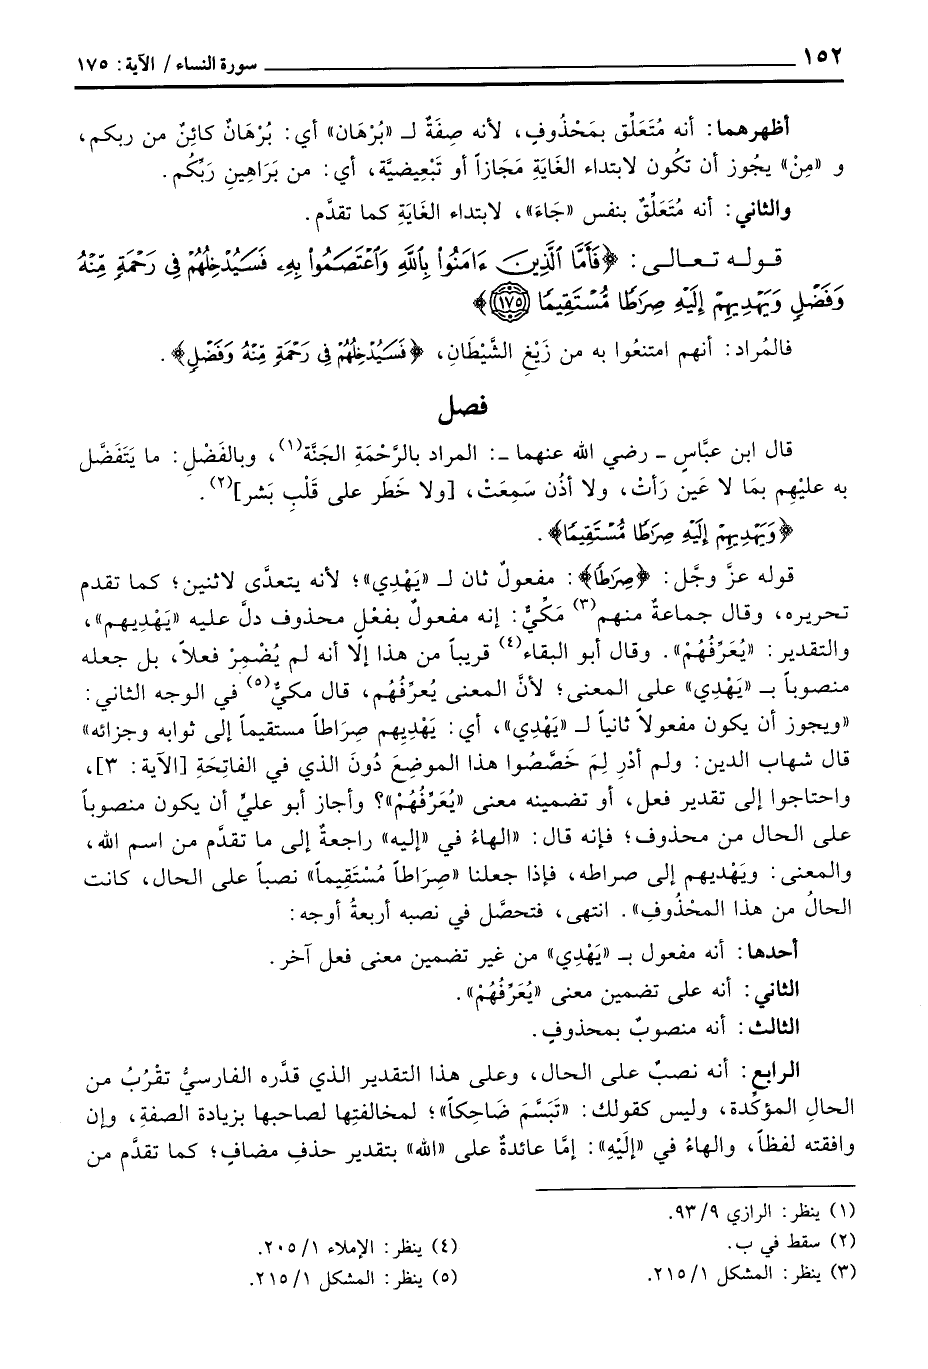 ١٥٢ سورة النساء / الآية: ١٧٥
أظهرهما: أنه مُتَعَلِّق بمَحْذُوفٍ، لأنه صِفَةٌ لـ «بُرْهَان» أي: بُرْهَانٌ كائِنٌ من ربكم،
و «مِنْ» يجُوز أن تكُون لابتداء الغَايَةِ مَجَازاً أو تَبْعِيضيَّة، أي: من بَرَاهِينِ رَبِّكُم.
والثاني: أنه مُتَعَلِّقٌ بنفس «جَاءَ»، لابتداء الغَايَةِ كما تقدَّم.
قوله تعالى: ﴿فَأَمَّا ٱلَّذِينَ ءَامَنُوا۟ بِٱللَّهِ وَٱعْتَصَمُوا۟ بِهِۦ فَسَيُدْخِلُهُمْ فِى رَحْمَةٍ مِّنْهُ
وَفَضْلٍ وَيَهْدِيهِمْ إِلَيْهِ صِرَٰطًا مُّسْتَقِيمًا ﴿١٧٥﴾﴾
فالمُراد: أنهم امتنعُوا به من زَيْغِ الشَّيْطَانِ، ﴿فَسَيُدْخِلُهُمْ فِى رَحْمَةٍ مِّنْهُ وَفَضْلٍ﴾.
فصل
قال ابن عبَّاسٍ - رضي الله عنهما -: المراد بالرَّحْمَةِ الجَنَّة(١)، وبالفَضْلِ: ما يَتَفَضَّل
به عليْهِم بمَا لا عَين رَأتْ، ولا أذُن سَمِعَتْ، [ولا خَطَر على قَلْبِ بَشر](٢).
﴿وَيَهْدِيهِمْ إِلَيْهِ صِرَٰطًا مُّسْتَقِيمًا﴾.
قوله عزَّ وجَّل: ﴿صِرَٰطًا﴾: مفعولٌ ثان لـ «يَهْدِي»؛ لأنه يتعدَّى لاثنين؛ كما تقدم
تحريره، وقال جماعةٌ منهم(٣) مَكِّيٌّ: إنه مفعولٌ بفعْلٍ محذوف دلَّ عليه «يَهْدِيهم»،
والتقدير: «يُعَرِّفُهُمْ». وقال أبو البقاء(٤) قريباً من هذا إلَّا أنه لم يُضْمِرْ فعلاً، بل جعله
منصوباً بـ «يَهْدِي» على المعنى؛ لأنَّ المعنى يُعرِّفُهُم، قال مكيٌّ(٥) في الوجه الثاني:
«ويجوز أن يكون مفعولاً ثانياً لـ «يَهْدِي»، أي: يَهْدِيهم صِرَاطاً مستقيماً إلى ثوابه وجزائه»
قال شهاب الدين: ولم أدْرِ لِمَ خَصَّصُوا هذا الموضِعَ دُونَ الذي في الفاتِحَةِ [الآية: ٣]،
واحتاجوا إلى تقدير فعل، أو تضمينه معنى «يُعَرِّفُهُمْ»؟ وأجاز أبو عليٍّ أن يكون منصوباً
على الحال من محذوف؛ فإنه قال: «الهاءُ في «إليه» راجعةٌ إلى ما تقدَّم من اسم الله،
والمعنى: ويَهْديهم إلى صراطه، فإذا جعلنا «صِرَاطاً مُسْتَقِيماً» نصباً على الحال، كانت
الحالُ من هذا المحْذُوفِ». انتهى، فتحصَّل في نصبه أربعةُ أوجه:
أحدها: أنه مفعول بـ «يَهْدِي» من غير تضمين معنى فعل آخر.
الثاني: أنه على تضمين معنى «يُعَرِّفُهُمْ».
الثالث: أنه منصوبٌ بمحذوفٍ.
الرابع: أنه نصبٌ على الحال، وعلى هذا التقدير الذي قدَّره الفارسيُّ تقْرُبُ من
الحالِ المؤكِّدة، وليس كقولك: «تَبَسَّمَ ضَاحِكاً»؛ لمخالفتِها لصاحبها بزيادة الصفةِ، وإن
وافقته لفظاً، والهاءُ في «إلَيْهِ»: إمَّا عائدةٌ على «الله» بتقدير حذفِ مضافٍ؛ كما تقدَّم من
(١) ينظر: الرازي ٩٣/٩.
(٢) سقط في ب.
(٣) ينظر: المشكل ٢١٥/١.
(٤) ينظر: الإملاء ٢٠٥/١.
(٥) ينظر: المشكل ٢١٥/١.